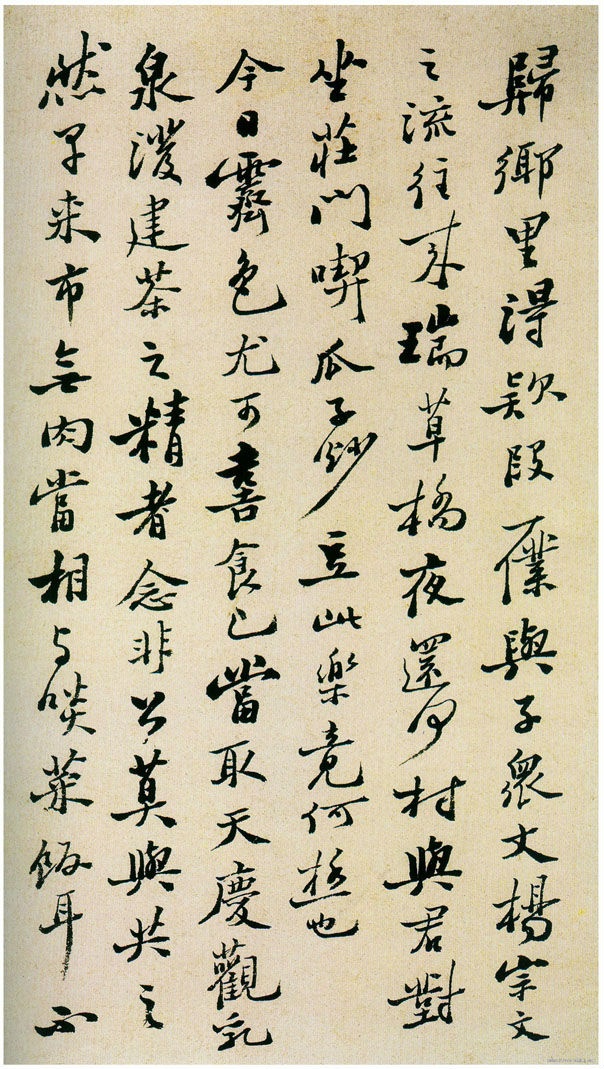 歸鄉里得款段一僕與子眾丈楊宗文
之流往來瑞草橋夜還何村與君對
坐莊門喫瓜子炒豆此樂竟何極也
今日霽色尤可喜食已當取天慶觀乳
泉潑建茶之精者念非公莫與共之
然早來市無肉當相与啖菜飯耳不